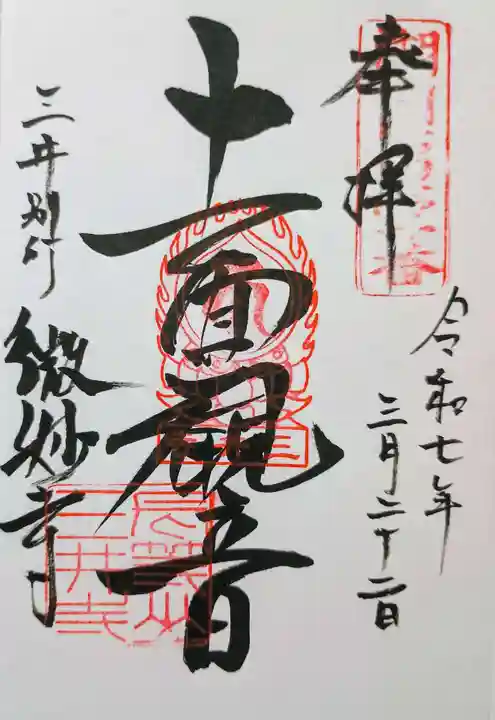 奉拝
令和七年
三月二十二日
十一面観音
三井別所
微妙寺
三井寺